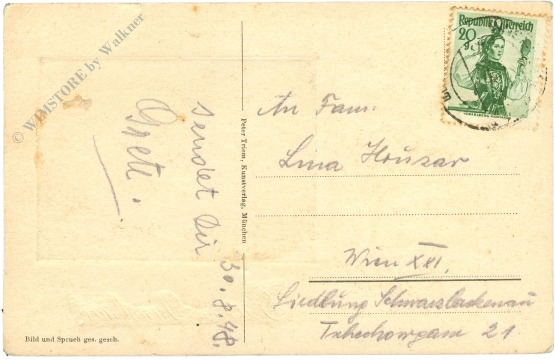 © WIMSTORE by Walkner
sendet Dir
Gretl.
30.8.48.
Peter Triem, Kunstverlag, München
Bild und Spruch ges. gesch.
Republik Österreich
20
g
An Fam.
Lina Houzar
Wien XXI.
Siedlung Schwarzlackenau
Tschechowgasse 21.